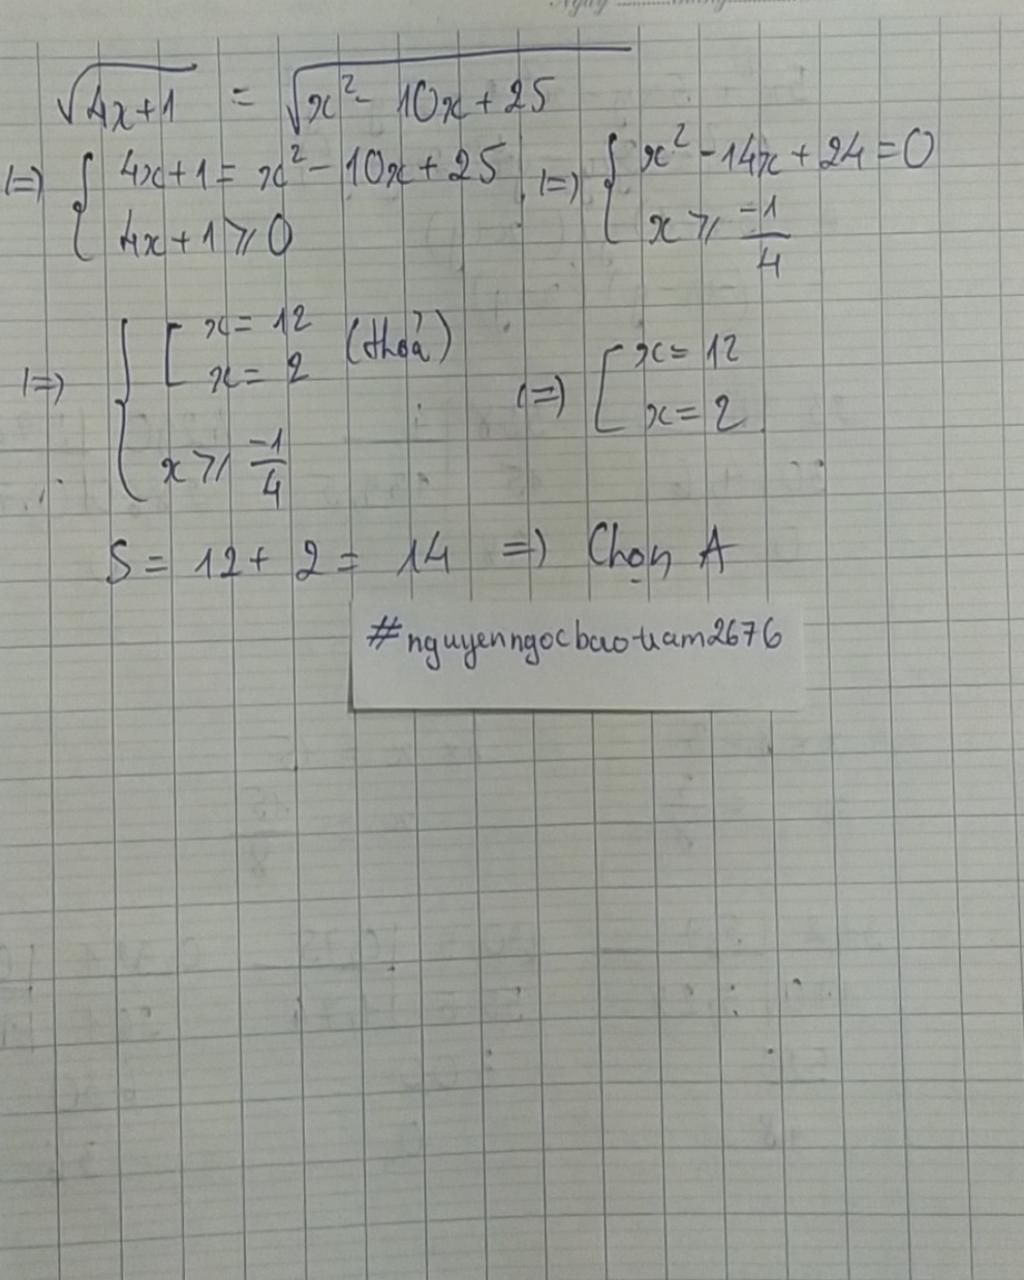 √(4x+1) = √(x² - 10x + 25)
(=) { 4x+1 = x² - 10x + 25 (=) { x² - 14x + 24 = 0
4x+1 ⩾ 0 x ⩾ -1/4
(=) { [ x = 12 (thoả) (=) [ x = 12
x = 2 x = 2
x ⩾ -1/4
S = 12 + 2 = 14 =) Chọn A
#nguyenngocbaotram2676